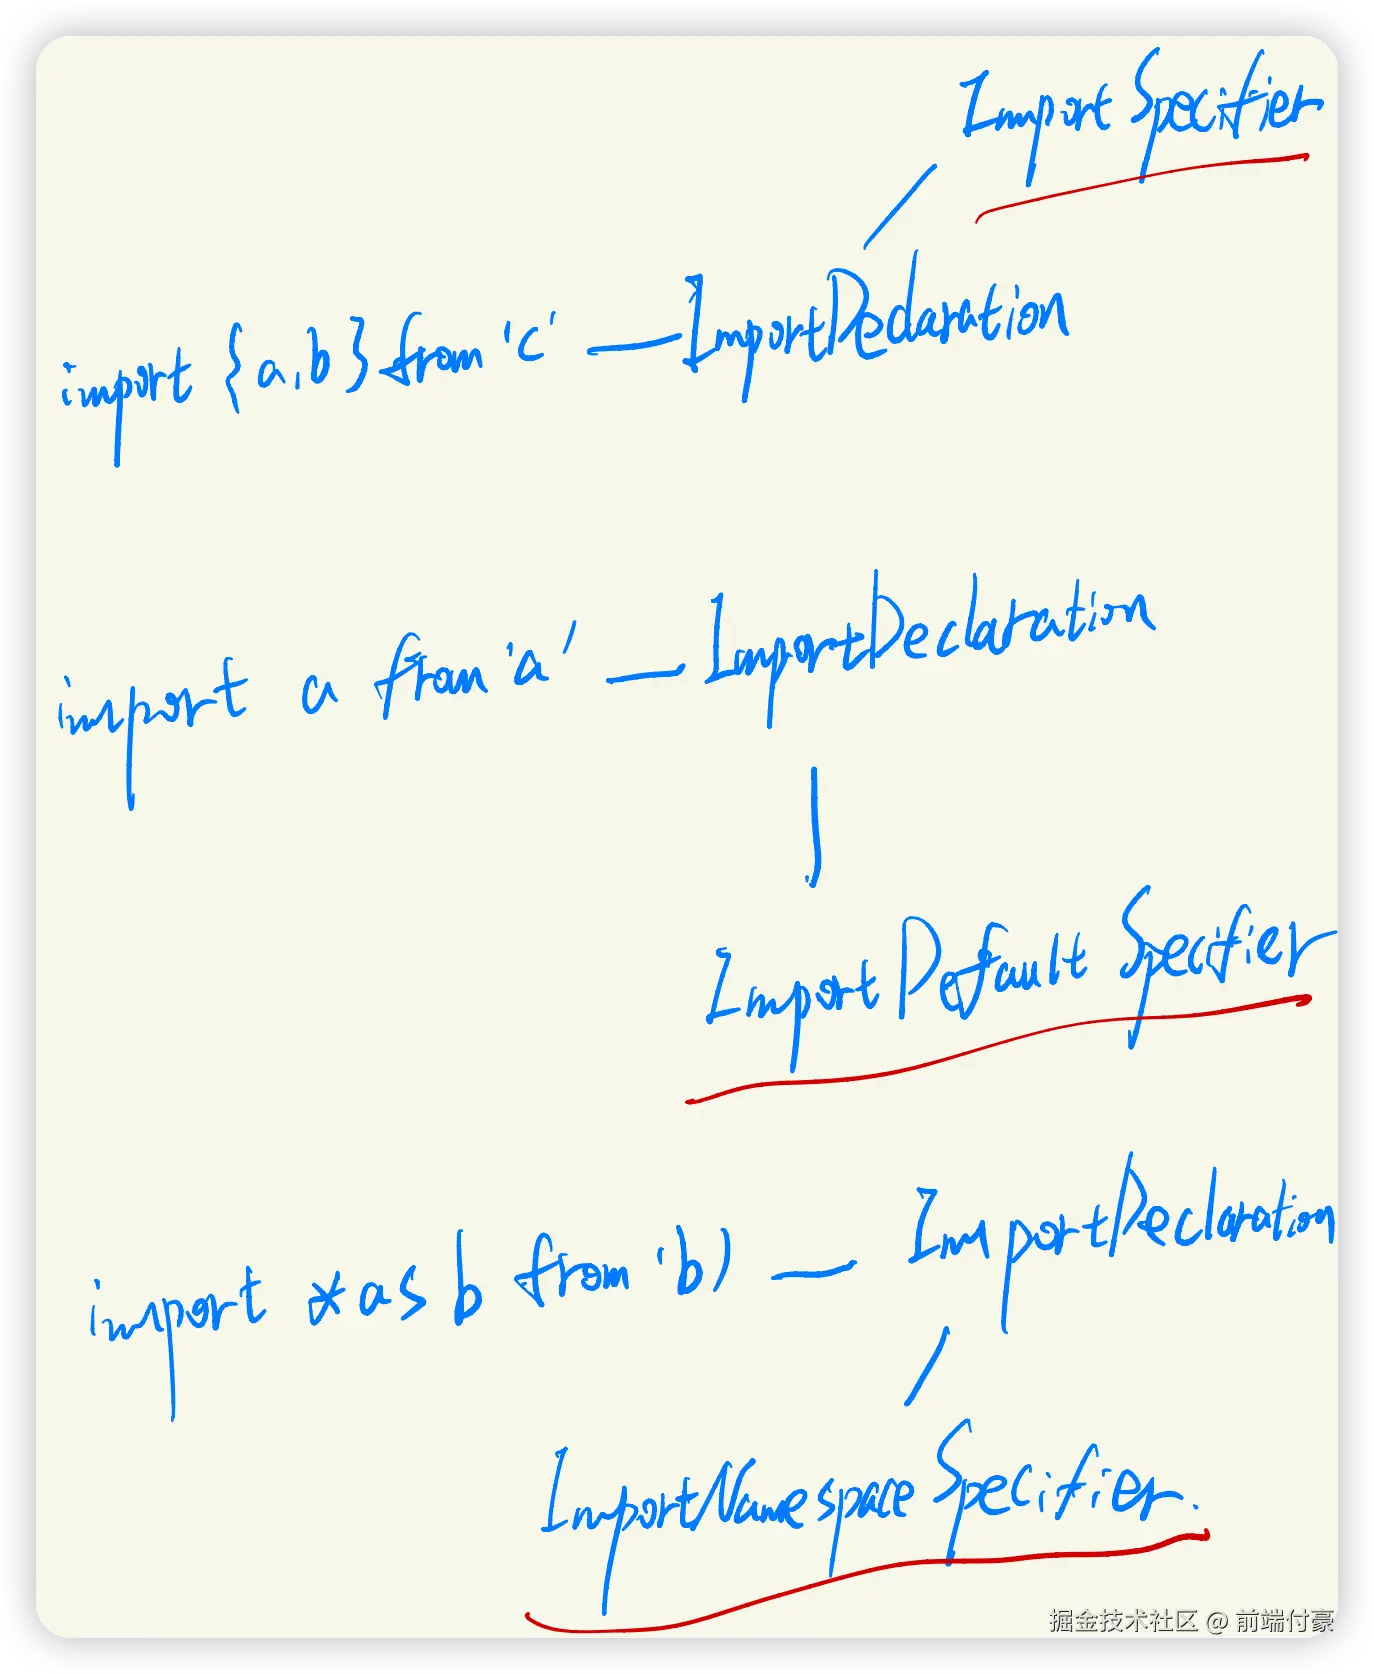 ImportSpecifier
import {a,b} from 'c' — ImportDeclaration
import a from 'a' — ImportDeclaration
ImportDefaultSpecifier
import *as b from 'b) — ImportDeclaration
ImportNamespaceSpecifier.
掘金技术社区 @ 前端付豪